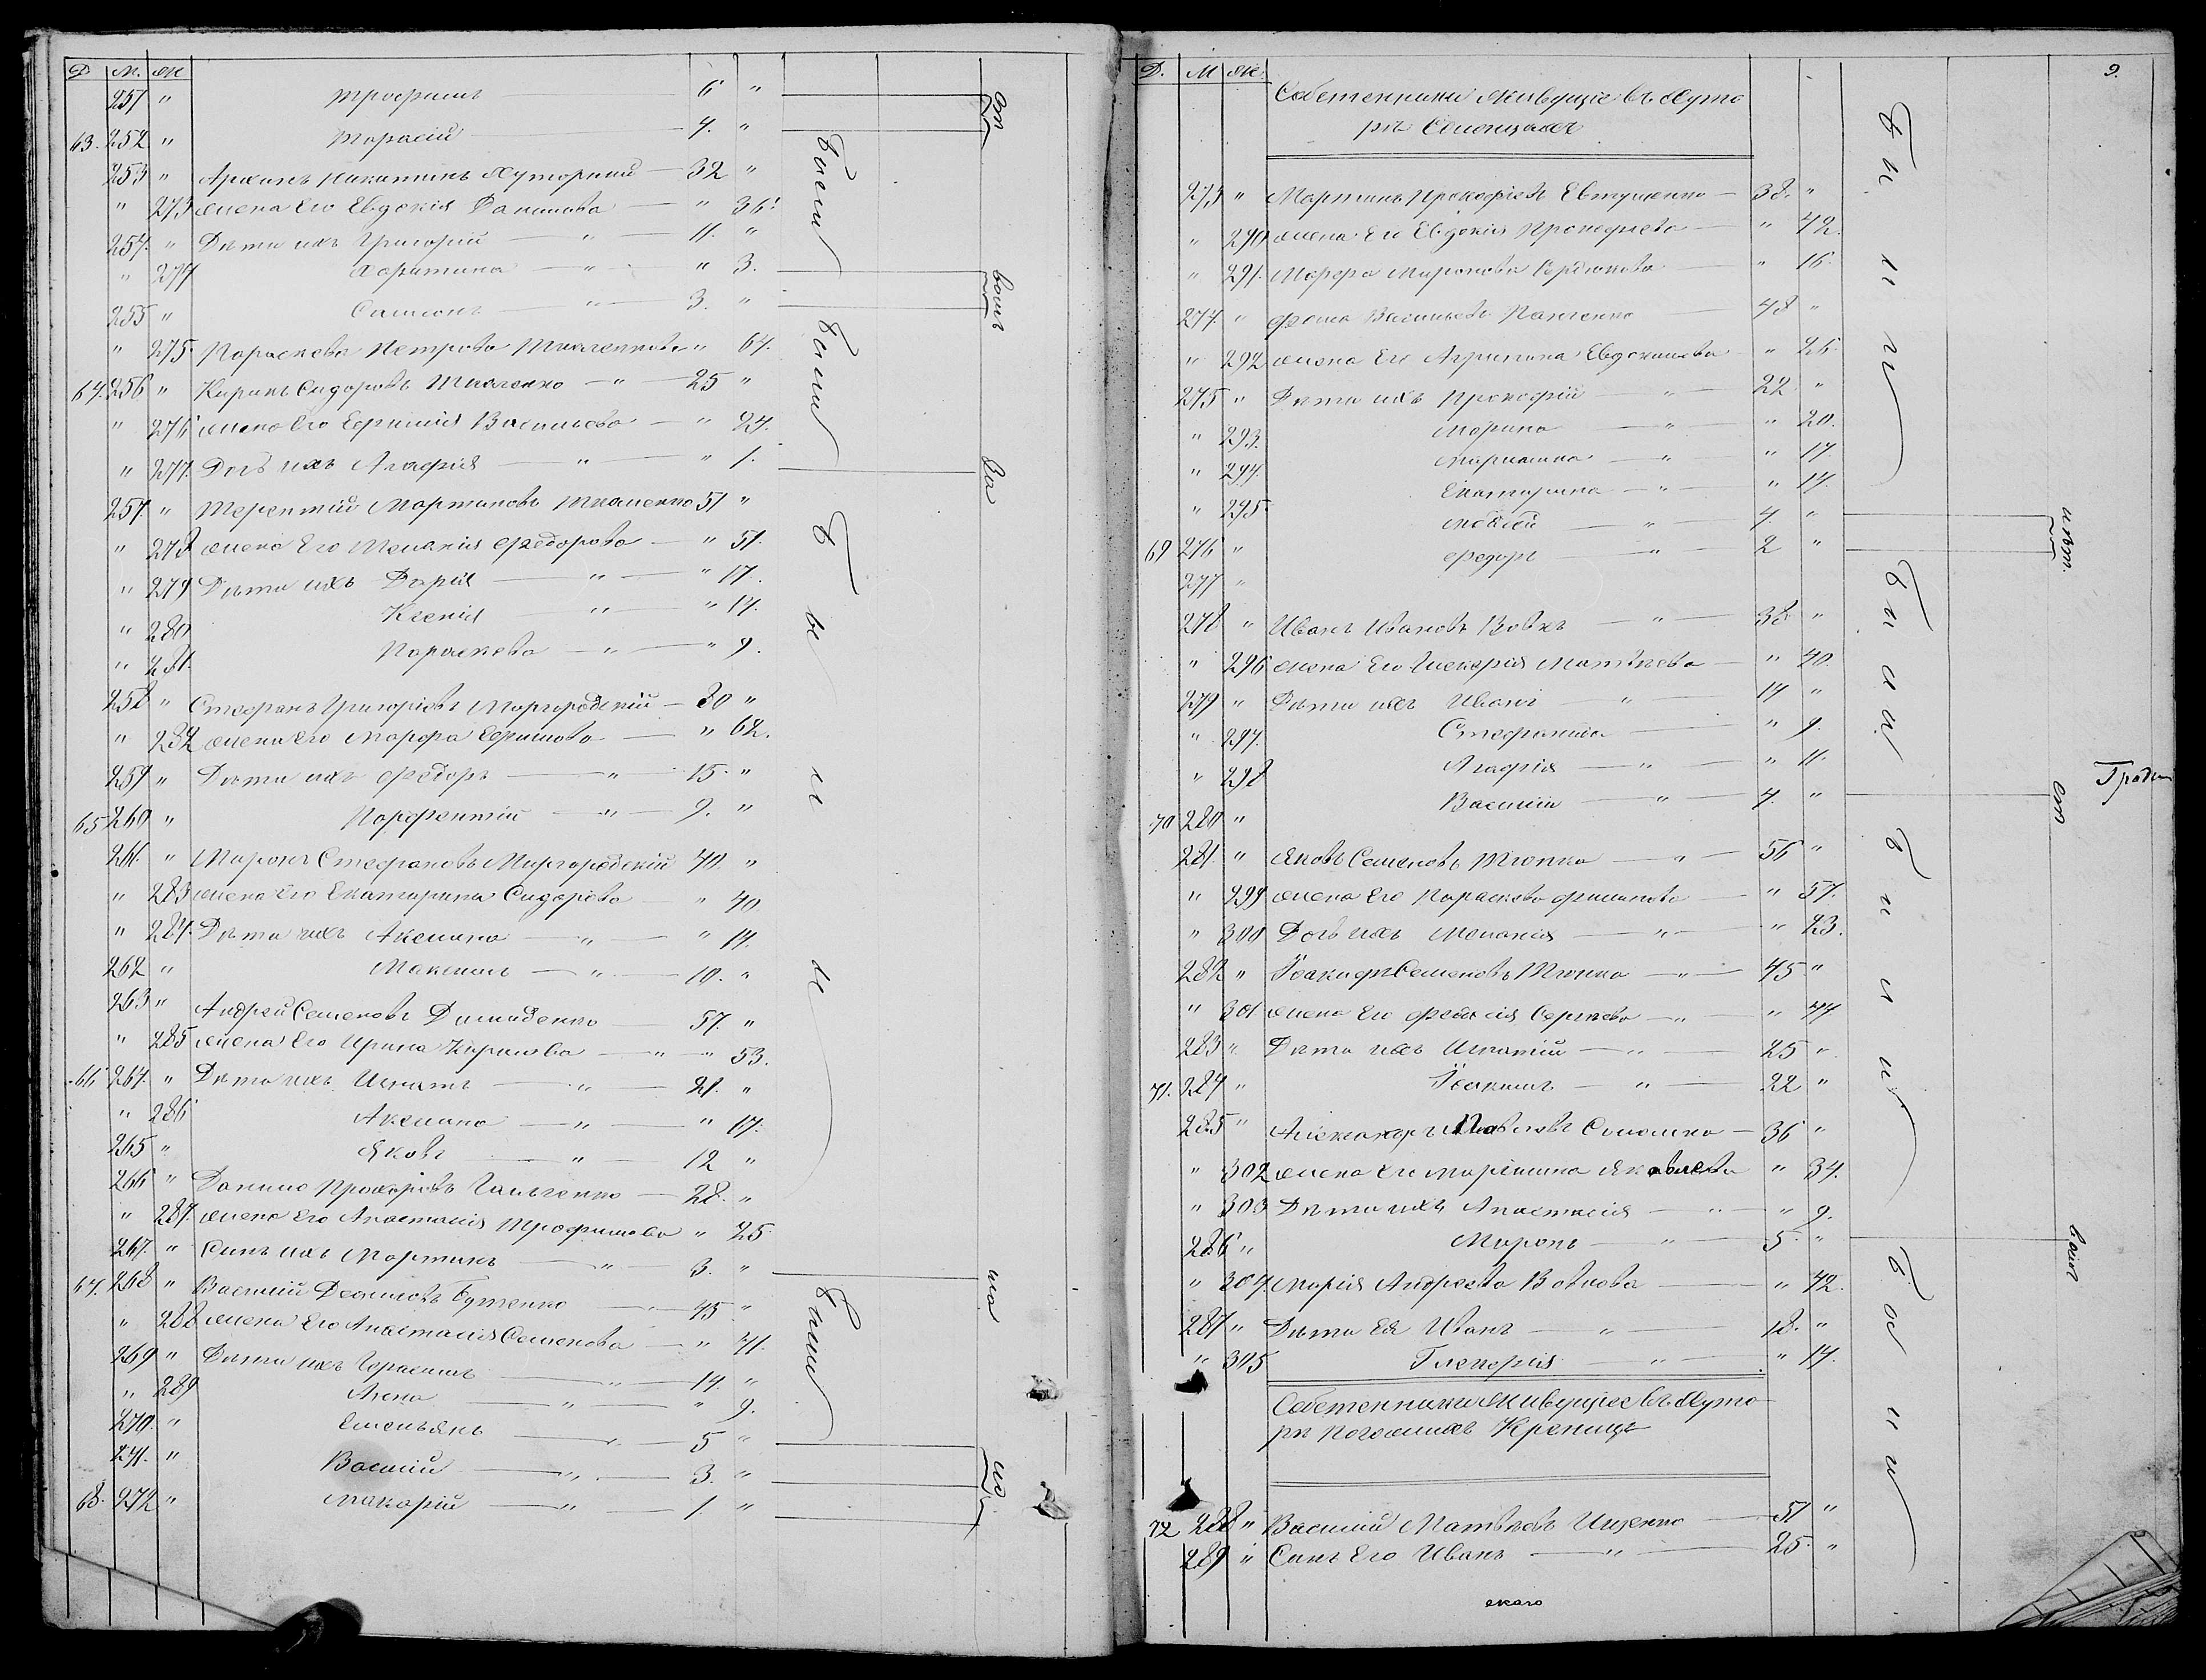 Д. М. Ж.
251 " Трофимъ 6 "
63. 252 " Тарасій 4. "
253 " Архипъ Никитинъ Хуторный 32 "
" 273 жена Его Евдокія Данилова " 36.
254. " Дѣти ихъ Григорій " 11. "
" 274 Харитина " " 3.
255 " Самсонъ " 3. "
" 275. Параскева Петрова Ткаченкова " 64.
64. 256 " Кирилъ Сидоровъ Ткаченко " 25 "
" 276 жена Его Евфимія Васильева " 24.
" 277. Дочь ихъ Агафія " " 1.
257. " Терентій Мартиновъ Ткаченко 51 "
" 278 жена Его Меланія Федорова " 51.
" 279 Дѣти ихъ Дарія " " 17.
" 280 Ксенія " " 14.
" 281. Параскева " " 9.
258 " Стефанъ Григоріевъ Миргородскій 30 "
" 282 жена Его Марфа Ефимова " 62.
259 " Дѣти ихъ Федоръ " 15. "
65 260 " Парфентій " 9. "
261. " Миронъ Стефановъ Миргородскій 40. "
" 283 жена Его Екатерина Сидорова " 40
" 284. Дѣти ихъ Аксинія " " 14.
262 " Максимъ " 10. "
263 " Андрей Семеновъ Демиденко 57. "
" 285 жена Его Ирина Кирилова " " 53.
66 264. " Дѣти ихъ Игнатъ " 21. "
" 286 Аксинія " " 17.
265 " Яковъ " 12 "
266 " Данило Прохоровъ Гальченко 28. "
" 287. жена Его Анастасія Трофимова " 25
267. " Синъ ихъ Мартинъ " 3. "
67. 268 " Василій Бутенко 45 "
" 288 жена Его Анастасія Семенова " 41.
269 " Дѣти ихъ Герасимъ " 14. "
" 289 Агена " " 9.
270. " Емельянъ " 5 "
271. " Василій " 3. "
68. 272 " Макарій " 1. "
Были
Были
Были
Были
9.
Д. М Ж.
Собственники Живущіе въ Хуто
рѣ Семенцахъ
273 " Мартинъ Прокофіевъ Евтушенко 38. "
" 290 жена Его Евдокія Прокофьева " 42.
" 291. Марфа Миронова Сердюкова " 16.
274. " Фома Васильевъ Панченко 48 "
" 292 жена Его Агрипина Евдокимова " 26.
275 " Дѣти ихъ Прокофій " 22. "
" 293. Марина " " 20.
" 294. Маріанна " " 17
" 295 Екатерина " " 14.
69 276 " " 4. "
277 " Федоръ " 2 "
278 " Иванъ Ивановъ Вовкъ " 38. "
" 296 жена Его Гликерія Матвѣева " 40.
279 " Дѣти ихъ Иванъ " 14 "
" 297. Стефанида " 9.
" 298 Агафія " " 11.
70 280 " Василій " 4. "
281. " Яковъ Семеновъ Тюпка " 56 "
" 299 жена Его Параскева Филипова " 57.
" 300 Дочь ихъ Меланія " " 23.
282 " Іоакимъ Семеновъ Тюпка " 45 "
" 301 жена Его Федосія Сергѣева " " 44
283 " Дѣти ихъ Игнатій " 25 "
71. 284 " Іоакимъ " 22 "
285 " Александръ Павловъ 36 "
" 302 жена Его Яковлева " 34.
" 303 Дѣти ихъ Анастасія " " 9.
286 " Миронъ " 5. "
" 304. Марія Андреева Вовкова " 42.
287 " Дѣти Ея Иванъ " 18. "
" 305 Гликерія " " 14.
Собственники Живущіе въ Хуто
рѣ Криницъ
72 288 " Василій Матвѣевъ Ищенко 51 "
289 " Синъ Его Иванъ " 25. "
скаго
Были
Были
Были
Были